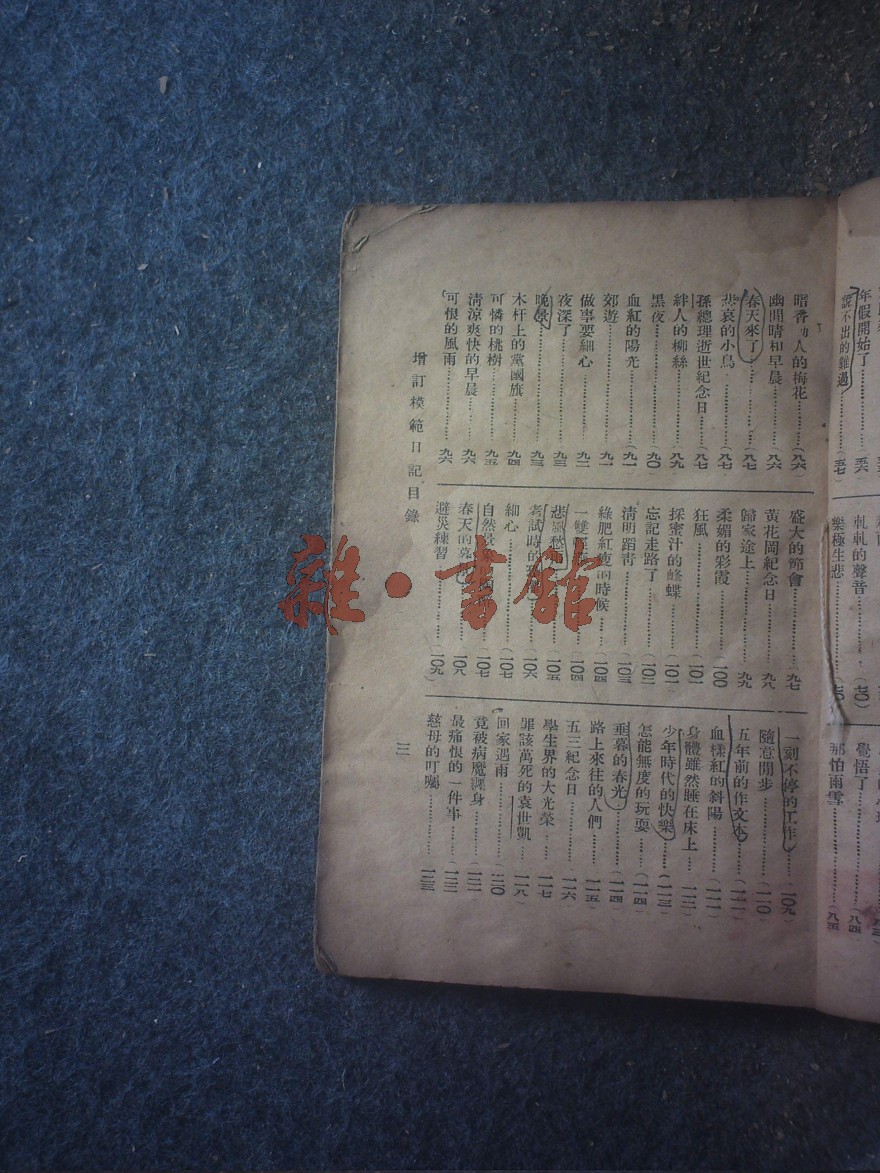 年假開始了
說不出的難過……(五七)
軋軋的聲音……(七〇)
樂極生悲
覺悟了……八四
那怕雨雪……八五
暗香動人的梅花……(八六)
幽閒晴和早晨……八六
春天來了……(八七
悲哀的小鳥……(八七
孫總理逝世紀念日……八七
絆人的柳絲……八九
黑夜……九〇)
血紅的陽光……(九一
郊遊……九一
做事要細心……九二
夜深了……九三
晚景……九三
木杆上的黨國旗……九四
可憐的桃樹……九五
清涼爽快的早晨……九六
可恨的風雨……九六
盛大的節會……九七
黃花岡紀念日……九八
歸家途上……九九
柔媚的彩霞……一〇〇
狂風……(一〇一
採蜜汁的蜂蝶……(一〇一
忘記走路了……(一〇二
清明踏青……(一〇三
綠肥紅瘦的時候……(一〇四
一雙……(一〇四
悲風愁……(一〇五
考試時的……一〇六
細心……(一〇七
自然景……(一〇七
春天的暮……一〇八
避災練習……(一〇九
一刻不停的工作……(一〇九
隨意閒步……(一一〇)
五年前的作文本……(一一一)
血樣紅的斜陽……(一一一)
身體雖然睡在床上……(一一二
少年時代的快樂……(一一三)
怎能無度的玩耍……(一一四)
垂暮的春光……(一一四
路上來往的人們……一一五
五三紀念日……一一六
學生界的大光榮……一一七
罪該萬死的袁世凱……一一八
回家遇雨……一二〇
竟被病魔纏身……(一二一
最痛恨的一件事……(一二二
慈母的叮囑……一二三
增訂模範日記目錄
三
雜·書館